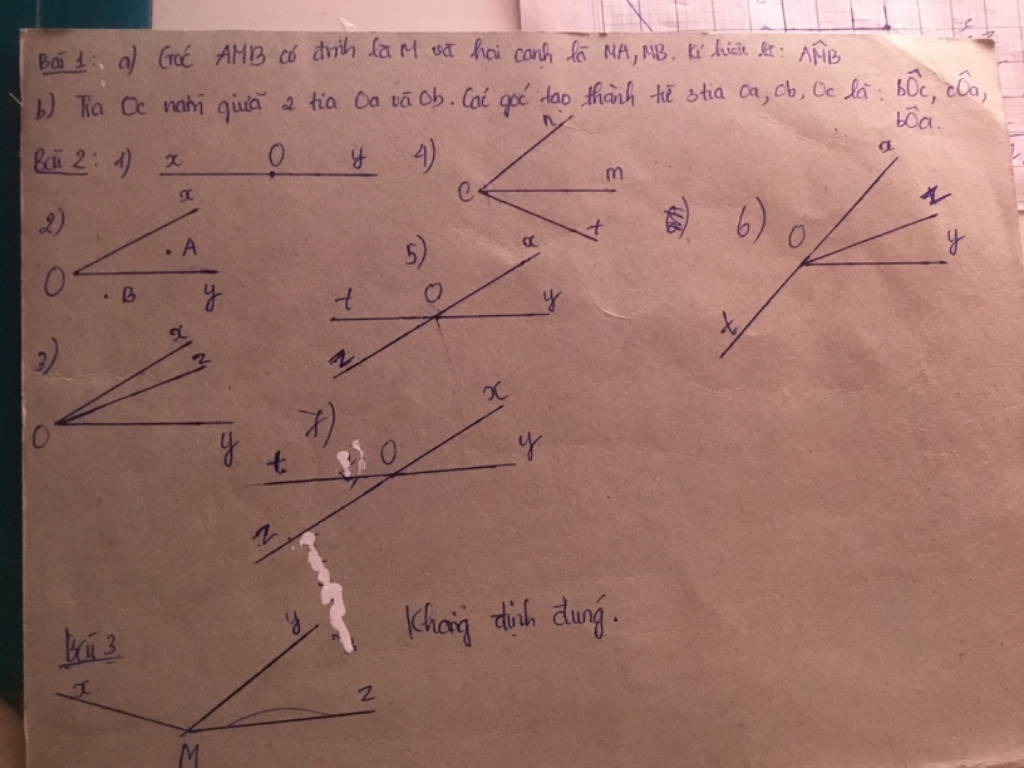 Bài 1: a) Góc AMB có đỉnh là M và hai cạnh là MA, MB. Kí hiệu là: AM̂B
b) Tia Oc nằm giữa 2 tia Oa và Ob. Các góc tạo thành từ 3 tia Oa, Ob, Oc là: bÔc, cÔa,
bÔa.
Bài 2: 1) x O y 4) n C m t
2) x O A B y
5) x t O y z
6) x O z y t
3) x z O y
7) x t O y z
Bài 3 x y z M
Khẳng định đúng.